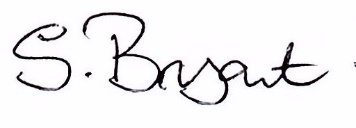 S. Bryant